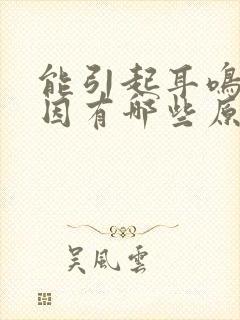 能引起耳鸣
因有哪些原
吴風雲